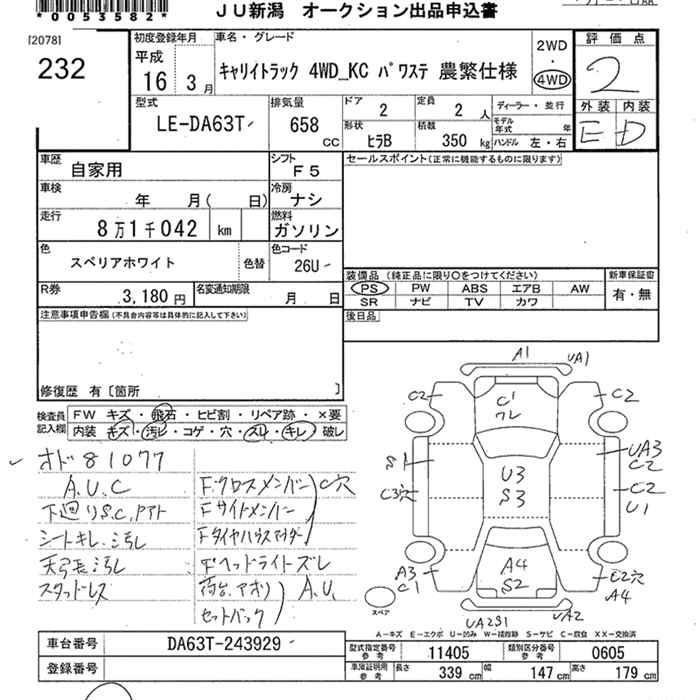 *0053582*
JU新潟 オークション出品申込書
[2078]
232
初度登録年月
平成
16 3月
車名・グレード
キャリイトラック 4WD_KC パワステ 農繁仕様
2WD
・
4WD
評価点
2
外装 内装
E D
型式
LE-DA63T
排気量
658 CC
ドア 2
定員 2 人
形状 ヒラB
積載 350 kg
ディーラー・並行
モデル年式 年
ハンドル 左・右
車歴 自家用
シフト F5
車検 年 月( 日)
冷房 ナシ
走行 8万1千042 km
燃料 ガソリン
色 スペリアホワイト 色替
色コード 26U
R券 3,180円
名変通知期限 月 日
セールスポイント(正常に機能するものに限ります)
装備品 (純正品に限り○をつけてください)
PS PW ABS エアB AW
SR ナビ TV カワ
新車保証書
有・無
後日品
注意事項申告欄 (不具合内容等は具体的に記入して下さい)
修復歴 有 [箇所 ]
検査員記入欄
FW キズ・飛石・ヒビ割・リペア跡・×要
内装 キズ・汚レ・コゲ・穴・スレ・キレ・破レ
オド81077
A.U.C
下廻りS.C,アト
シートキレ.汚レ
天張汚レ
スタッドレス
F.クロスメンバー C穴
Fサイドメンバー
Fタイヤハウスアウター
ヘッドライトズレ
荷台.アオリ A.U.
セットバック
A1 UA1
C2 C1 ワレ C2
S1 UA3
C2
C3穴 U3 C2
S3 U1
A3 A4 C2穴
C1 S2 A4
スペア
UA2S1 UA2
A-キズ E-エクボ U-凹み W-補修跡 S-サビ C-腐食 XX-交換済
車台番号 DA63T-243929
登録番号
型式指定番号 参考 11405
類別区分番号 参考 0605
車庫証明用 参考 長さ 339 cm 幅 147 cm 高さ 179 cm